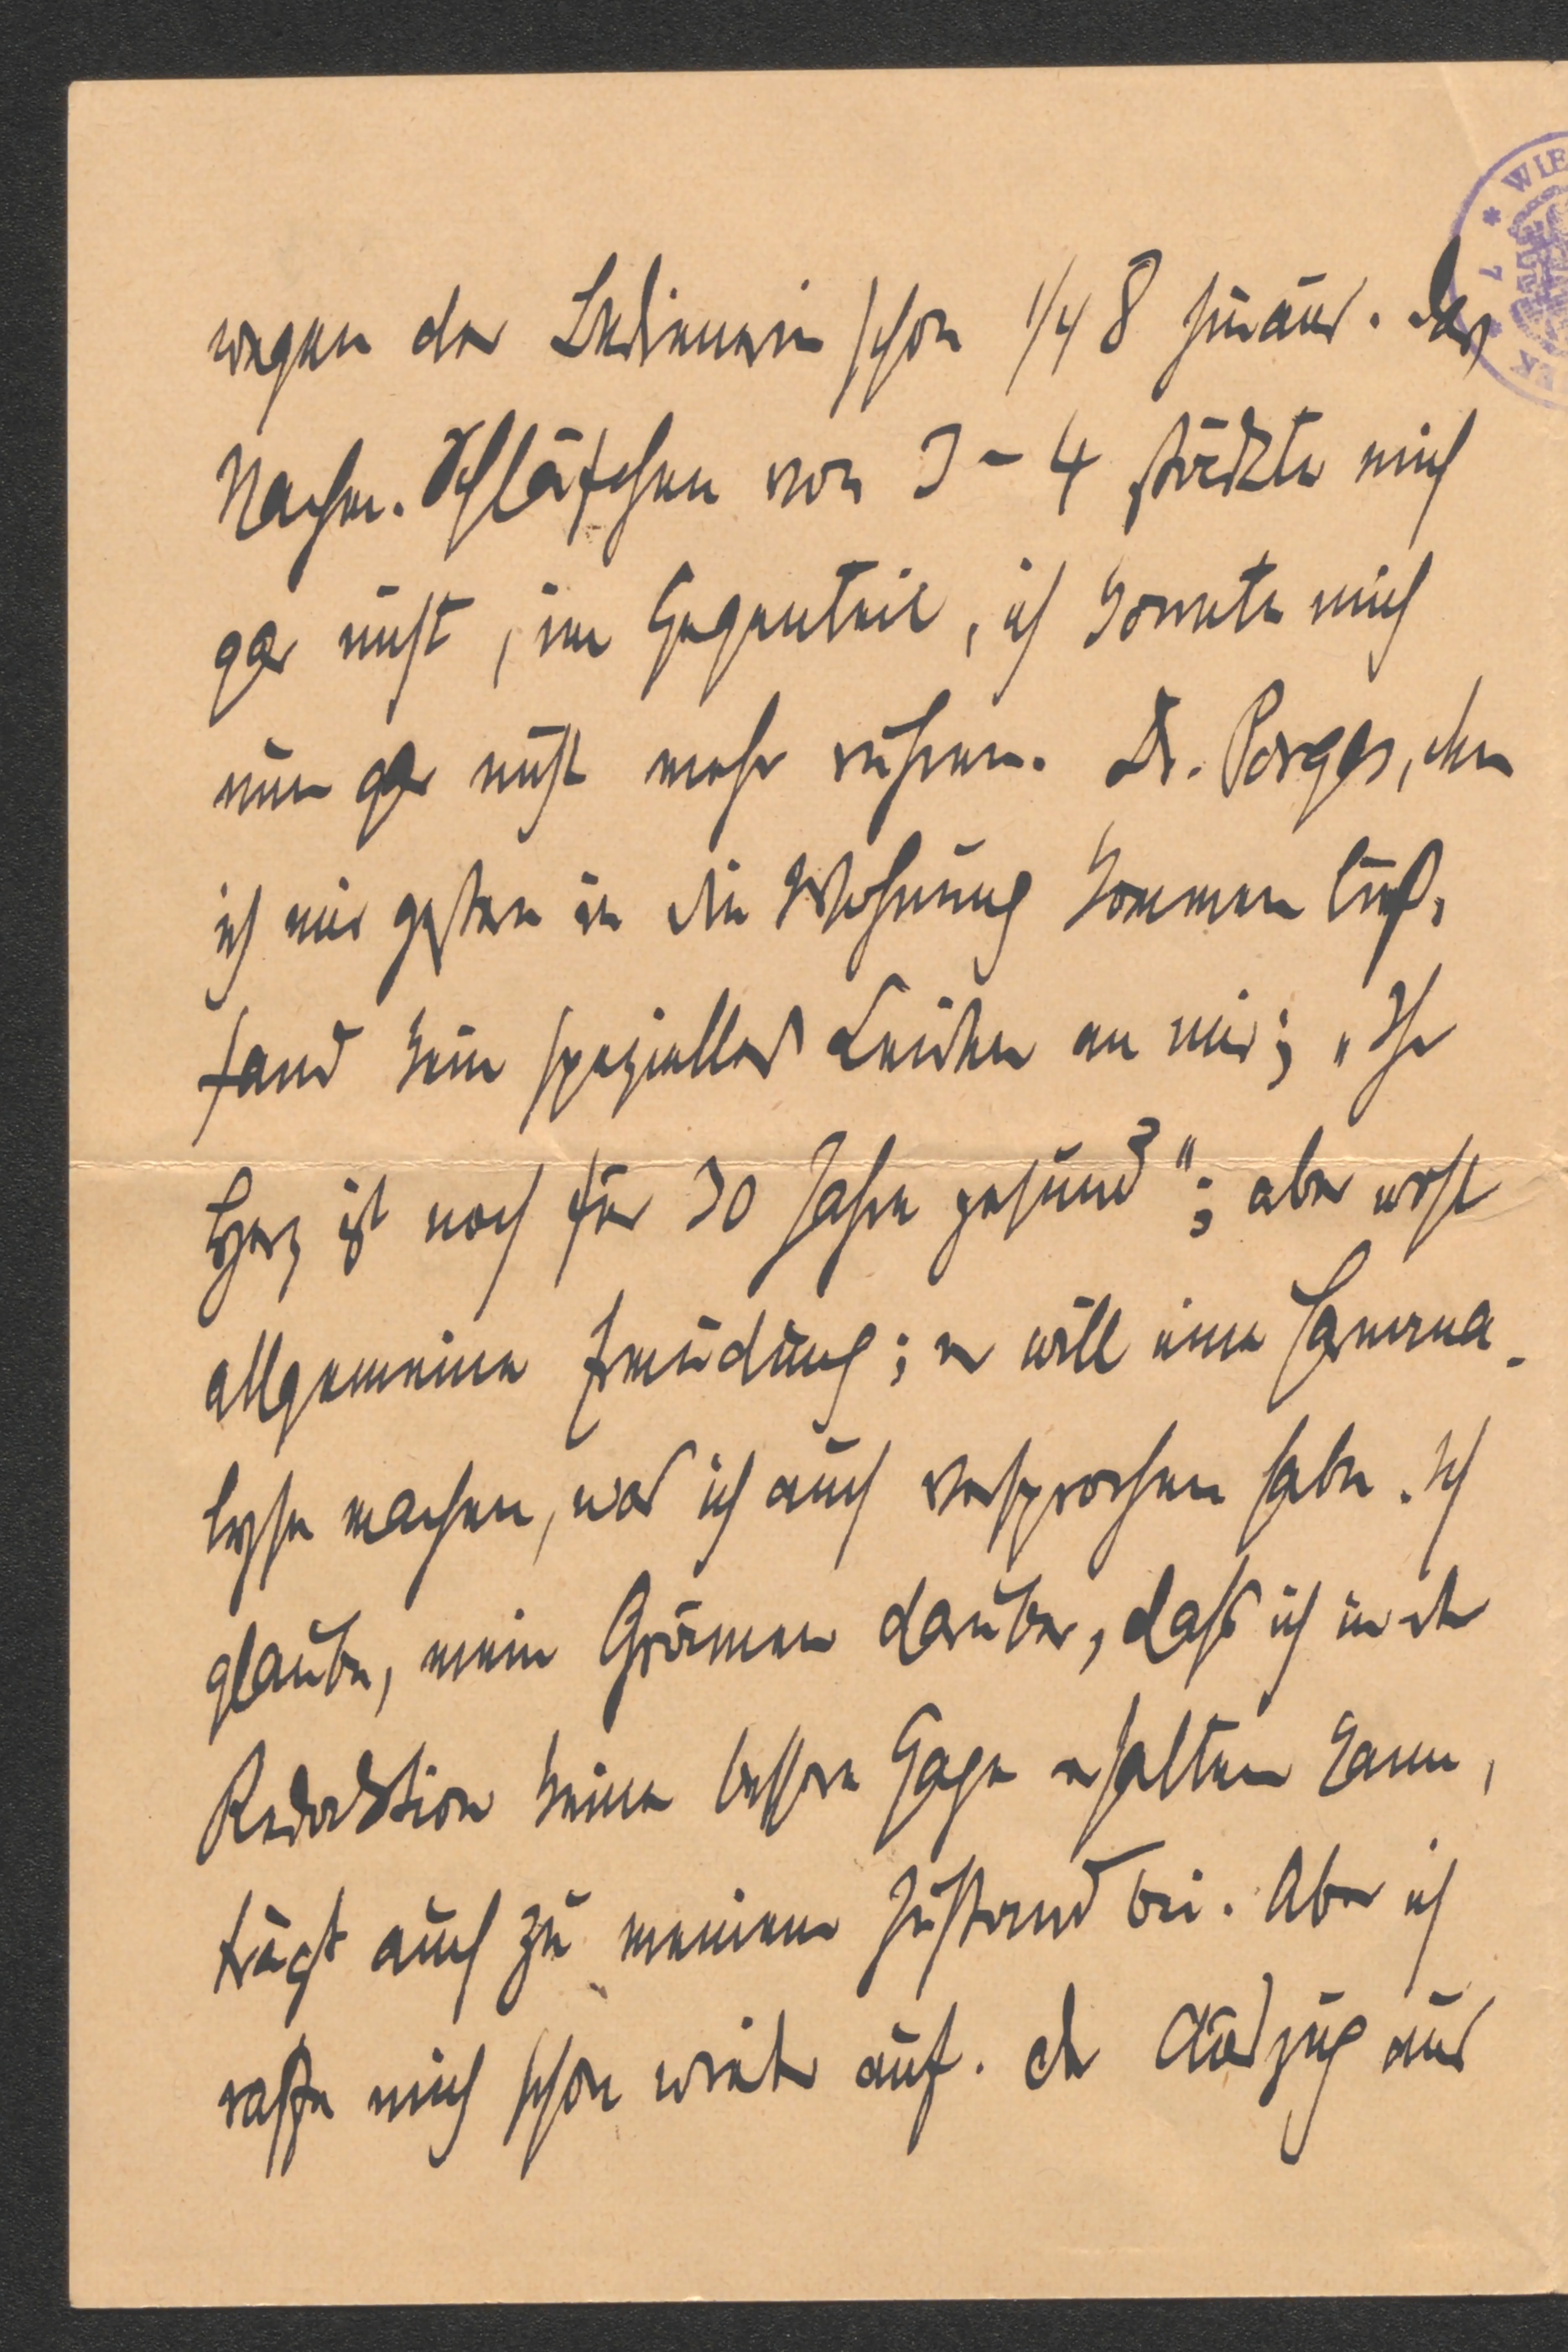 wegen der Bedienerin schon 1/4 8 hinaus. Das
Nachm. Schläfchen von 3 – 4 stärkte mich
gar nicht, im Gegenteil, ich konnte mich
nun gar nicht mehr rühren. Dr. Porges, den
ich mir gestern in die Wohnung kommen ließ,
fand kein spezielles Leiden an mir; „Ihr
Herz ist noch für 30 Jahre gesund“; aber wohl
allgemeine Ermüdung; er will eine Harnana-
lyse machen, was ich auch versprochen habe. Ich
glaube, mein Grämen darüber, dass ich in der
Redaktion keine bessere Gage erhalten kann,
trägt auch zu meinem Zustand bei. Aber ich
raffe mich schon wieder auf. Der Auszug aus
WIE
7
EK